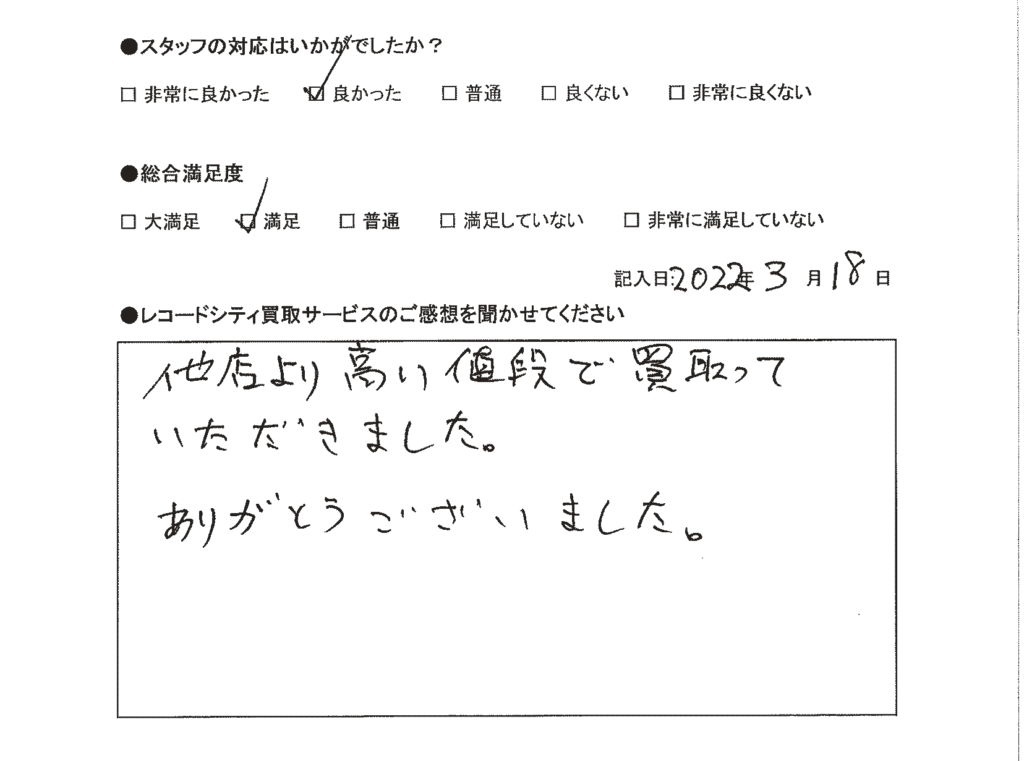 ●スタッフの対応はいかがでしたか？
□ 非常に良かった ☑ 良かった □ 普通 □ 良くない □ 非常に良くない
●総合満足度
□ 大満足 ☑ 満足 □ 普通 □ 満足していない □ 非常に満足していない
記入日:2022年 3 月 18 日
●レコードシティ買取サービスのご感想を聞かせてください
他店より高い値段で買取って
いただきました。
ありがとうございました。